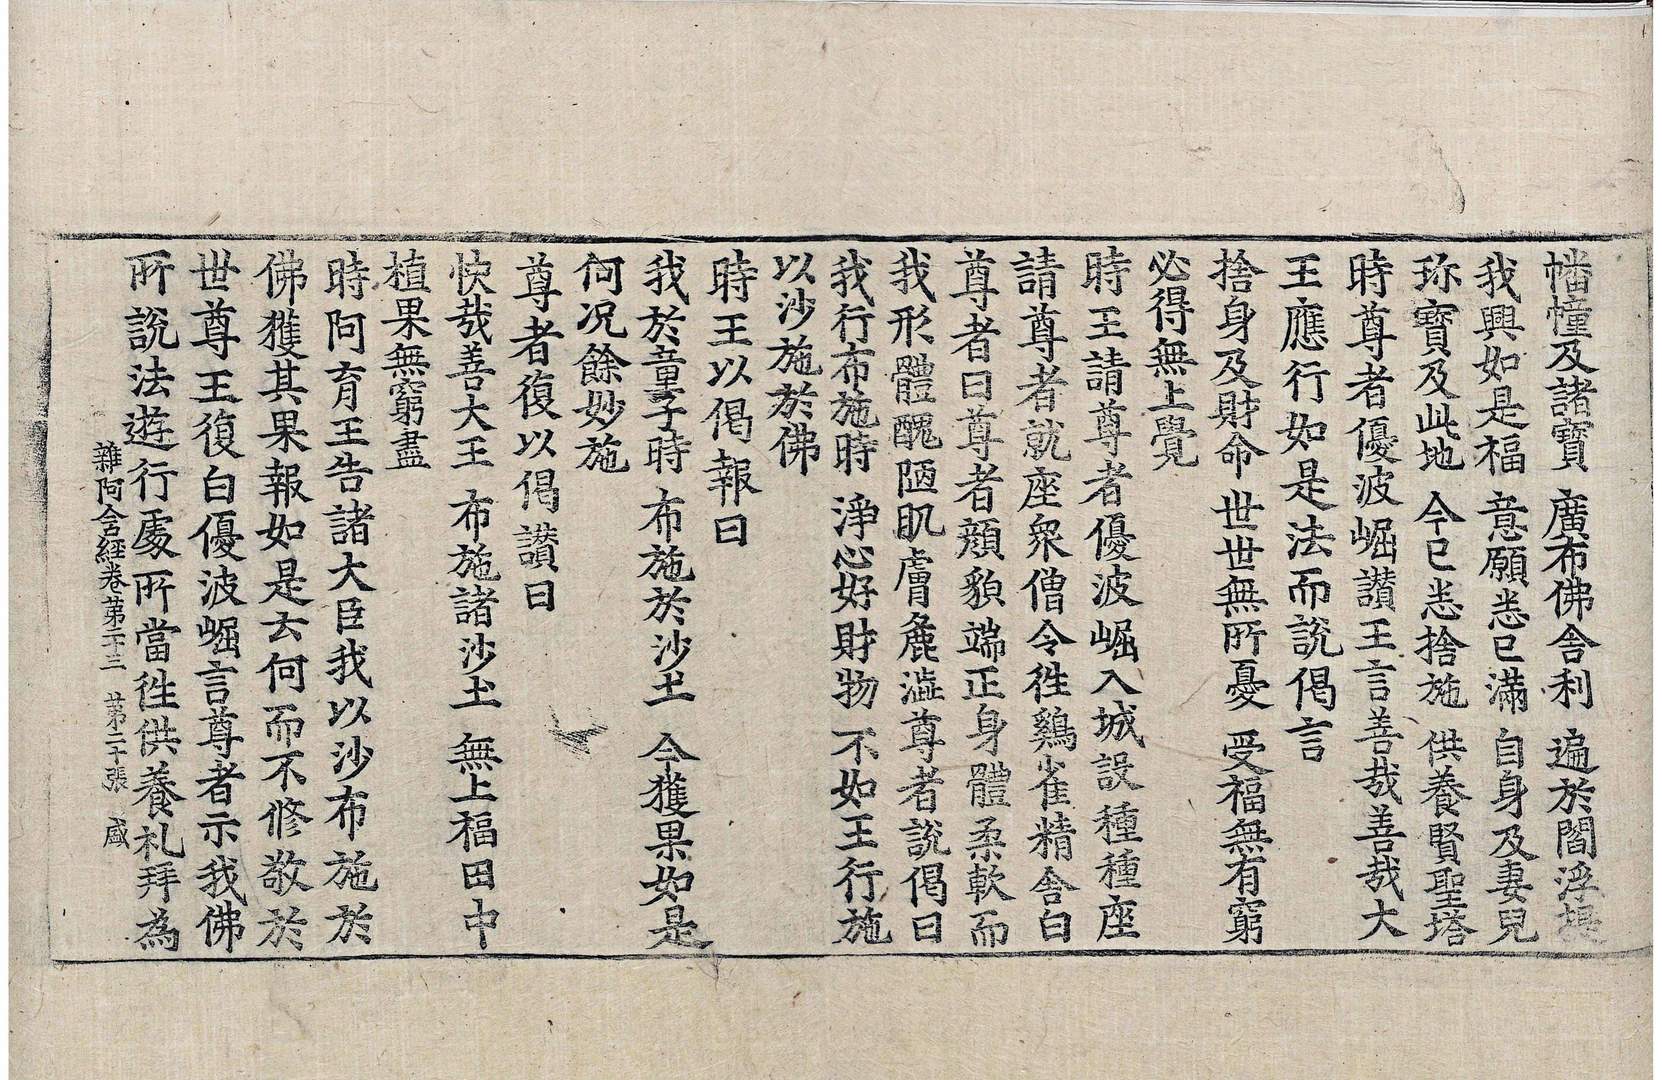 幡幢及諸寶　廣布佛舍利　遍於閻浮提
我興如是福　意願悉已滿　自身及妻兒
珎寶及此地　今已悉捨施　供養賢聖塔
時尊者優波崛讃王言善哉善哉大
王應行如是法而說偈言
捨身及財命　世世無所憂　受福無有窮
必得無上覺
時王請尊者優波崛入城設種種座
請尊者就座衆僧令徃鷄雀精舍白
尊者曰尊者顔貌端正身體柔軟而
我形體醜陋肌膚麁澁尊者說偈曰
我行布施時　淨心好財物　不如王行施
以沙施於佛
時王以偈報曰
我於童子時　布施於沙土　今獲果如是
何况餘妙施
尊者復以偈讃曰
快㦲善大王　布施諸沙土　無上福田中
植果無窮盡
時阿育王告諸大臣我以沙布施於
佛獲其果報如是云何而不修敬於
世尊王復白優波崛言尊者示我佛
所說法遊行處所當徃供養礼拜為
雜阿含經卷第二十三　第二十張　盛